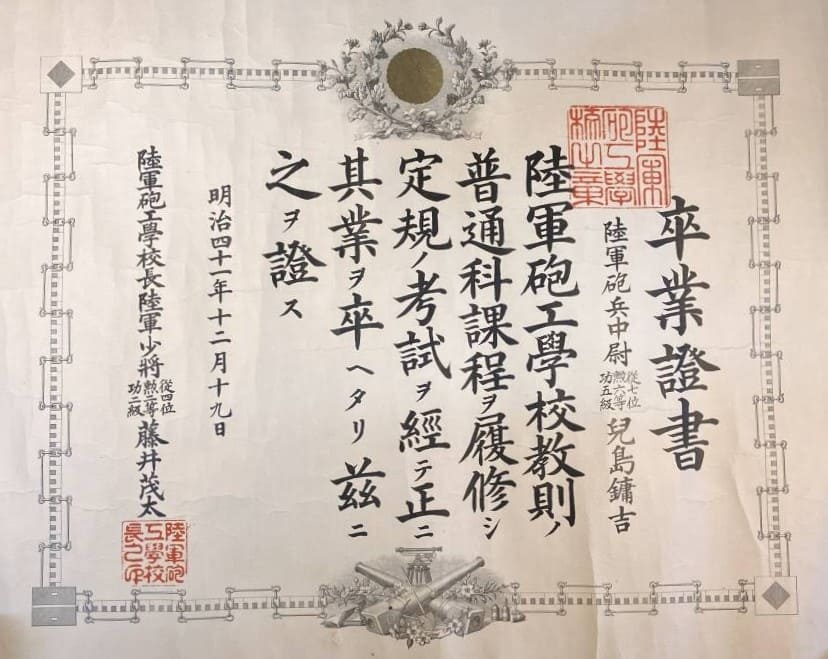 卒業證書
陸軍砲工學校之章
陸軍砲兵中尉 從七位 勲六等 功五級 兒島鏞吉
陸軍砲工學校教則ノ
普通科課程ヲ履修シ
定規ノ考試ヲ經テ正ニ
其業ヲ卒ヘタリ茲ニ
之ヲ證ス
明治四十一年十二月十九日
陸軍砲工學校長陸軍少將 從四位 勲二等 功二級 藤井茂太
陸軍砲工學校長之印